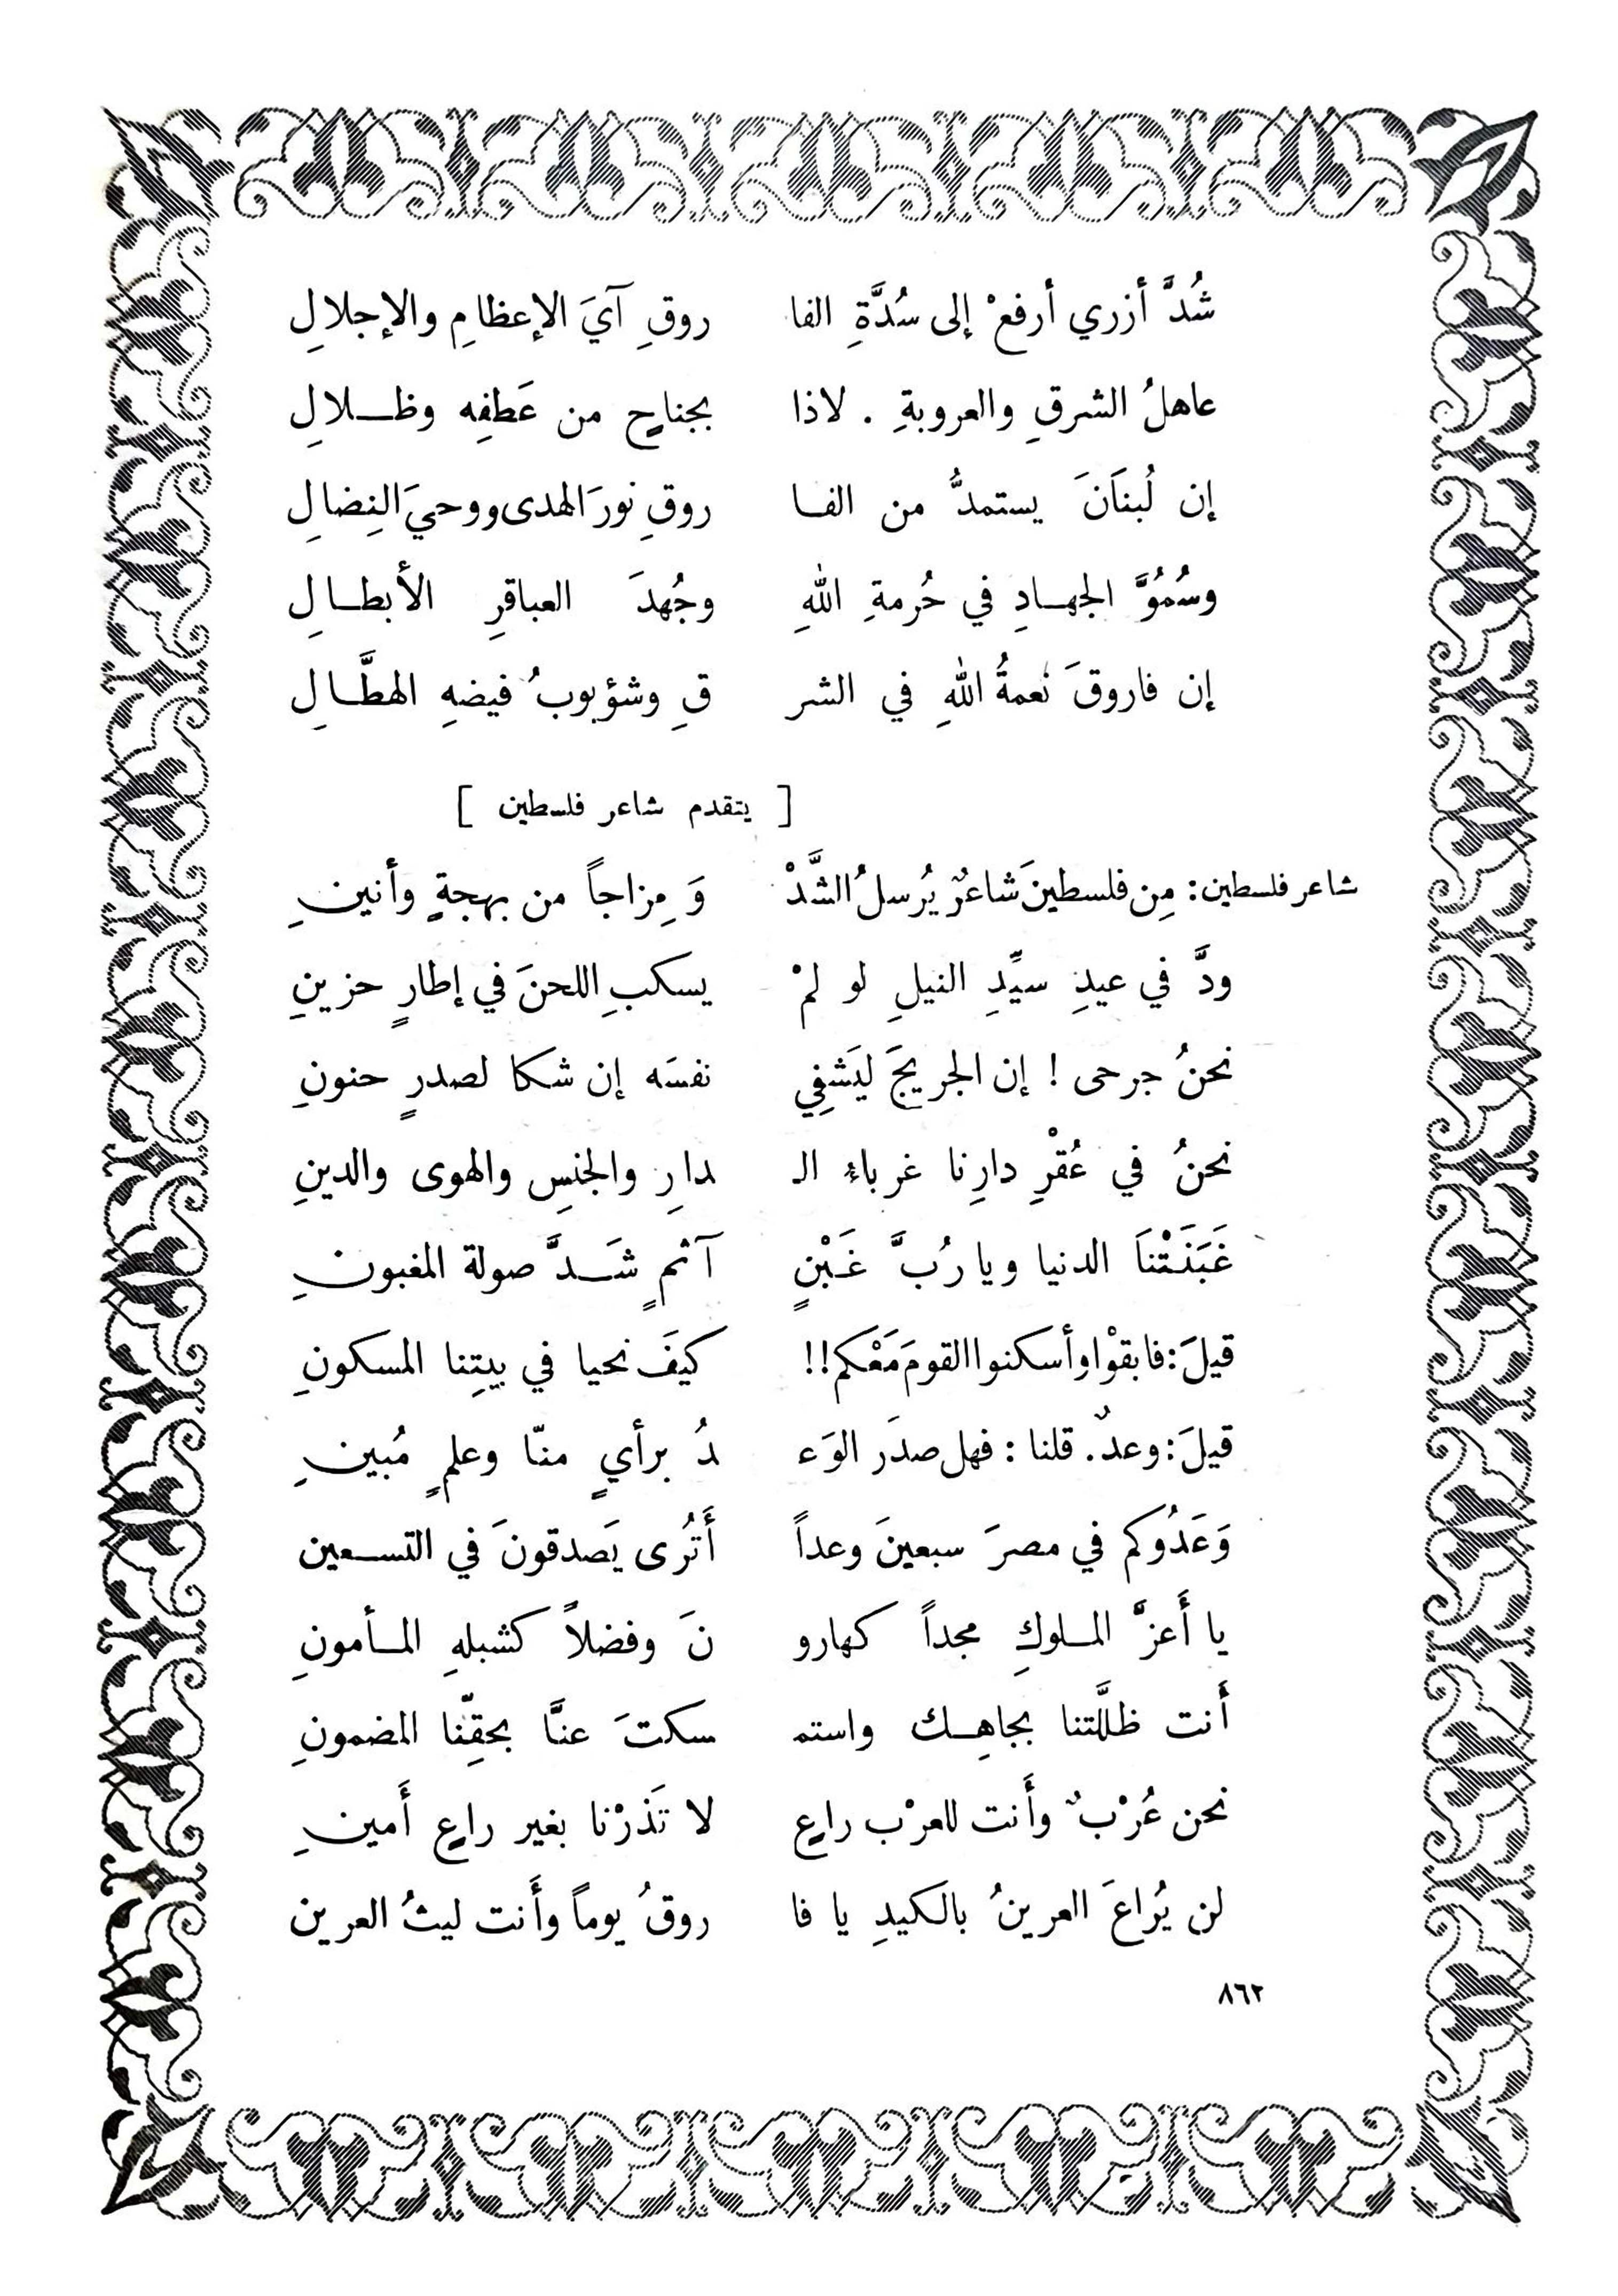 شُدَّ أزري أرفعْ إلى سُدَّةِ الفا روقِ آيَ الإعظامِ والإجلالِ
عاهلُ الشرقِ والعروبةِ . لاذا بجناحٍ من عَطفِه وظـــلالِ
إن لُبنانَ يستمدُّ من الفـا روقِ نورَ الهدى ووحيَ النِضالِ
وسُمُوَّ الجهـادِ في حُرمةِ اللهِ وجُهدَ العباقرِ الأبطـالِ
إن فاروقَ نعمةُ اللهِ في الشر قِ وشؤبوبُ فيضهِ الهطَّـالِ
[ يتقدم شاعر فلسطين ]
شاعر فلسطين: مِن فلسطينَ شاعرٌ يُرسلُ الشَّدْ وَ مِزاجاً من بهجةٍ وأنينِ
ودَّ في عيدِ سيِّدِ النيلِ لو لمْ يسكبِ اللحنَ في إطارٍ حزينِ
نحنُ جرحى ! إن الجريحَ ليَشفِي نفسَه إن شكا لصدرٍ حنونِ
نحنُ في عُقْرِ دارِنا غرباءِ الـ ـدارِ والجنسِ والهوى والدينِ
غَبَنَتْنَا الدنيا ويا رُبَّ غَبْنٍ آثمٍ شَـــدَّ صولة المغبونِ
قيلَ: فابقوْا وأسكنوا القومَ مَعْكم!! كيفَ نحيا في بيتِنا المسكونِ
قيلَ: وعدٌ. قلنا : فهل صدَر الوَعـ ـدُ برأيٍ منّا وعلمٍ مُبينِ
وَعَدُوكم في مصرَ سبعينَ وعداً أَتُرى يَصدقونَ في التســعين
يا أَعزَّ المـلوكِ مجداً كهارو نَ وفضلاً كشبلهِ المـأمونِ
أَنت ظلَّلتنا بجاهِـك واستمـ ـسكتَ عنَّا بحقِّنا المضمونِ
نحن عُرْبٌ وأَنت للعرْب راعٍ لا تَذرْنا بغير راعٍ أَمينِ
لن يُراعَ العرينُ بالكيدِ يا فا روقُ يوماً وأَنت ليثُ العرين
٨٦٢